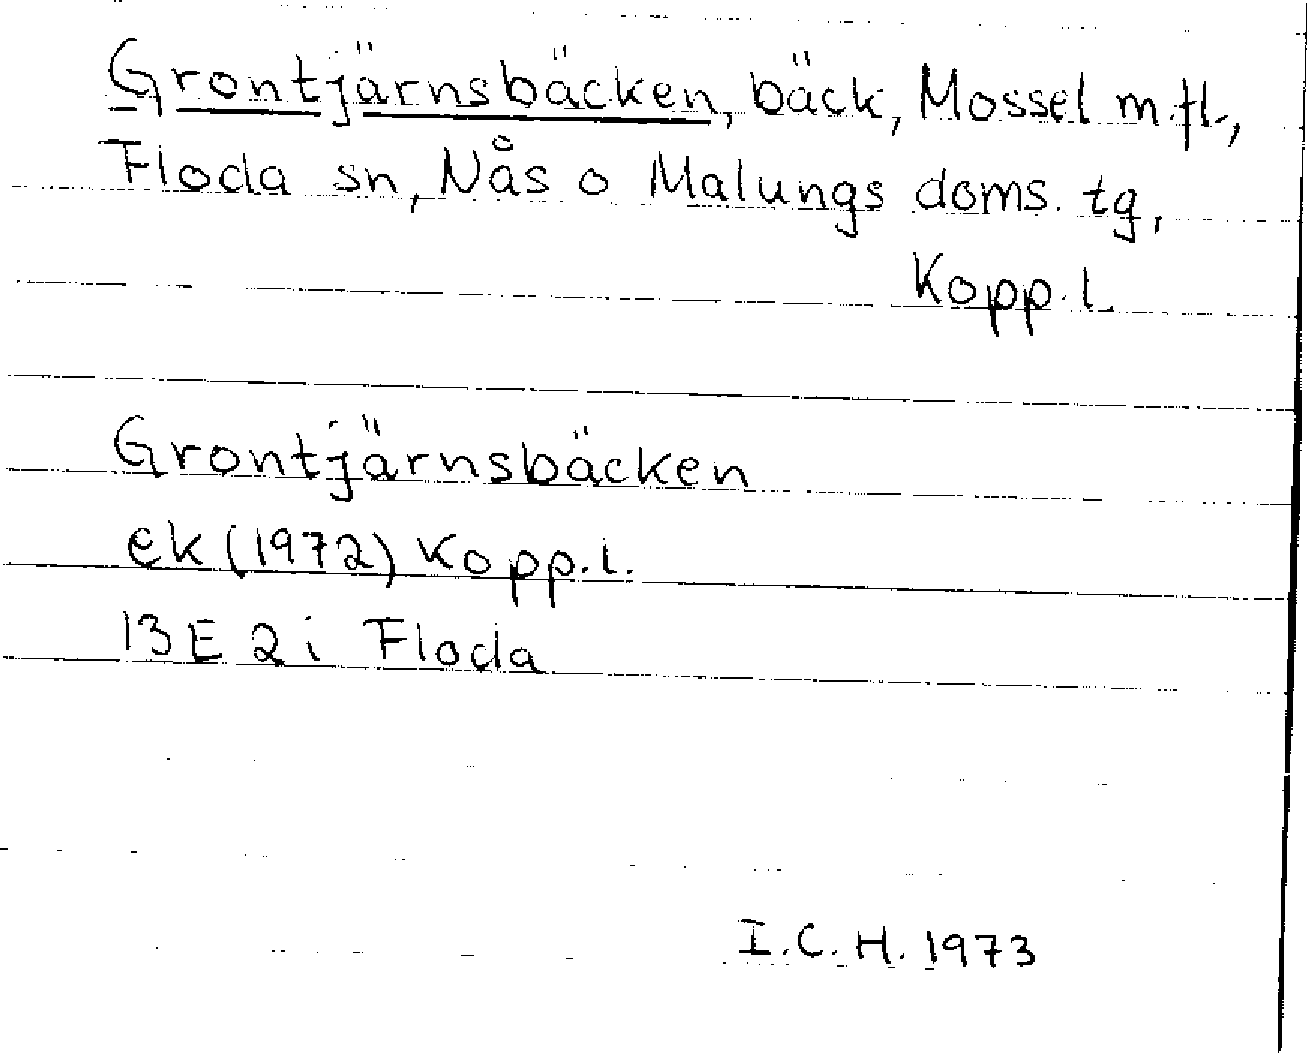 Grontjärnsbäcken, bäck, Mossel m.fl.,
Floda sn, Nås o Malungs doms. tg,
Kopp. l.
Grontjärnsbäcken
ek (1972) Kopp. l.
13E 2i Floda
I.C.H. 1973